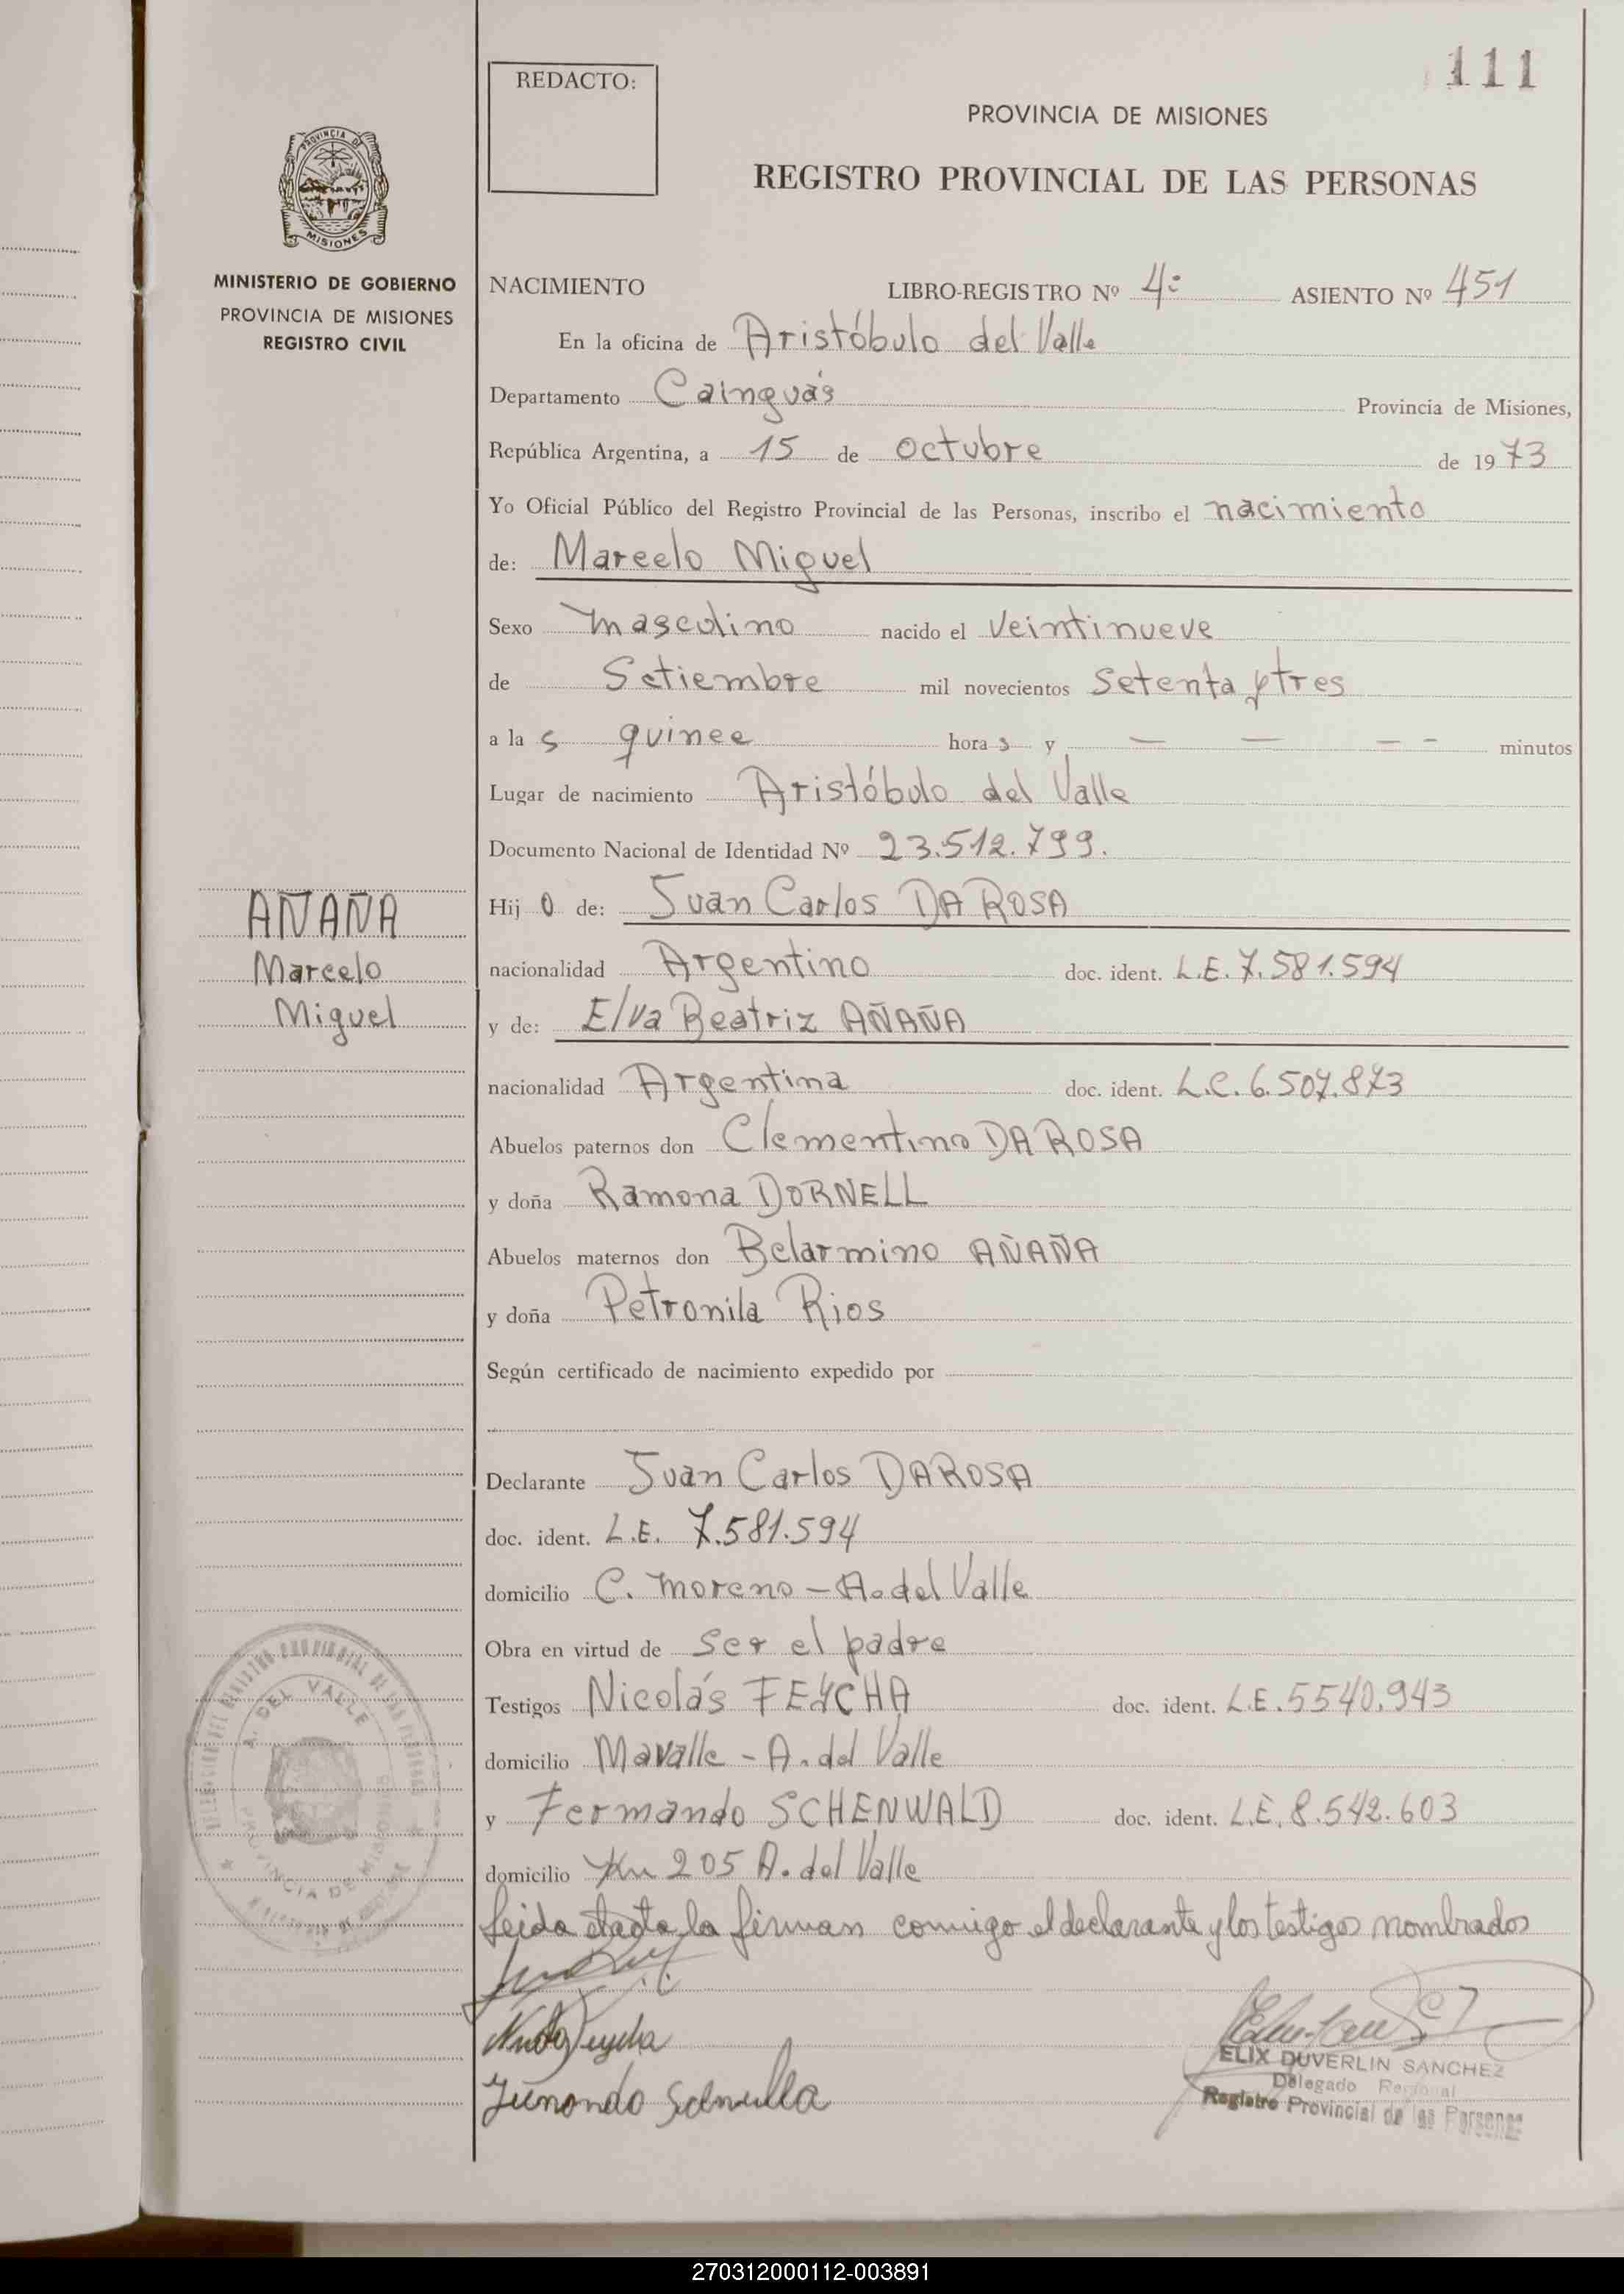 111
REDACTO:
PROVINCIA DE MISIONES
REGISTRO PROVINCIAL DE LAS PERSONAS
PROVINCIA DE
MISIONES
MINISTERIO DE GOBIERNO
PROVINCIA DE MISIONES
REGISTRO CIVIL
NACIMIENTO LIBRO-REGISTRO Nº 4º ASIENTO Nº 451
En la oficina de Aristóbulo del Valle
Departamento Cainguás Provincia de Misiones,
República Argentina, a 15 de octubre de 1973
Yo Oficial Público del Registro Provincial de las Personas, inscribo el nacimiento
de: Marcelo Miguel
Sexo masculino nacido el veintinueve
de Setiembre mil novecientos setenta y tres
a las quince horas y — — — - minutos
Lugar de nacimiento Aristóbulo del Valle
Documento Nacional de Identidad Nº 23.512.799.
Hijo de: Juan Carlos DA ROSA
AÑAÑA
Marcelo
Miguel
nacionalidad Argentino doc. ident. L.E. 7.581.594
y de: Elva Beatriz AÑAÑA
nacionalidad Argentina doc. ident. L.C. 6.507.873
Abuelos paternos don Clementino DA ROSA
y doña Ramona DORNELL
Abuelos maternos don Belarmino AÑAÑA
y doña Petronila Rios
Según certificado de nacimiento expedido por
Declarante Juan Carlos DA ROSA
doc. ident. L.E. 7.581.594
domicilio C. Moreno - A. del Valle
Obra en virtud de ser el padre
Testigos Nicolás FEYCHA doc. ident. L.E. 5540.943
domicilio Mavalle - A. del Valle
y Fernando SCHENWALD doc. ident. L.E. 8.542.603
domicilio Km 205 A. del Valle
Leida el acta la firman conmigo el declarante y los testigos nombrados
A. DEL VALLE
PROVINCIA DE MISIONES
ELIX DUVERLIN SANCHEZ
Delegado Regional
Registro Provincial de las Personas
270312000112-003891